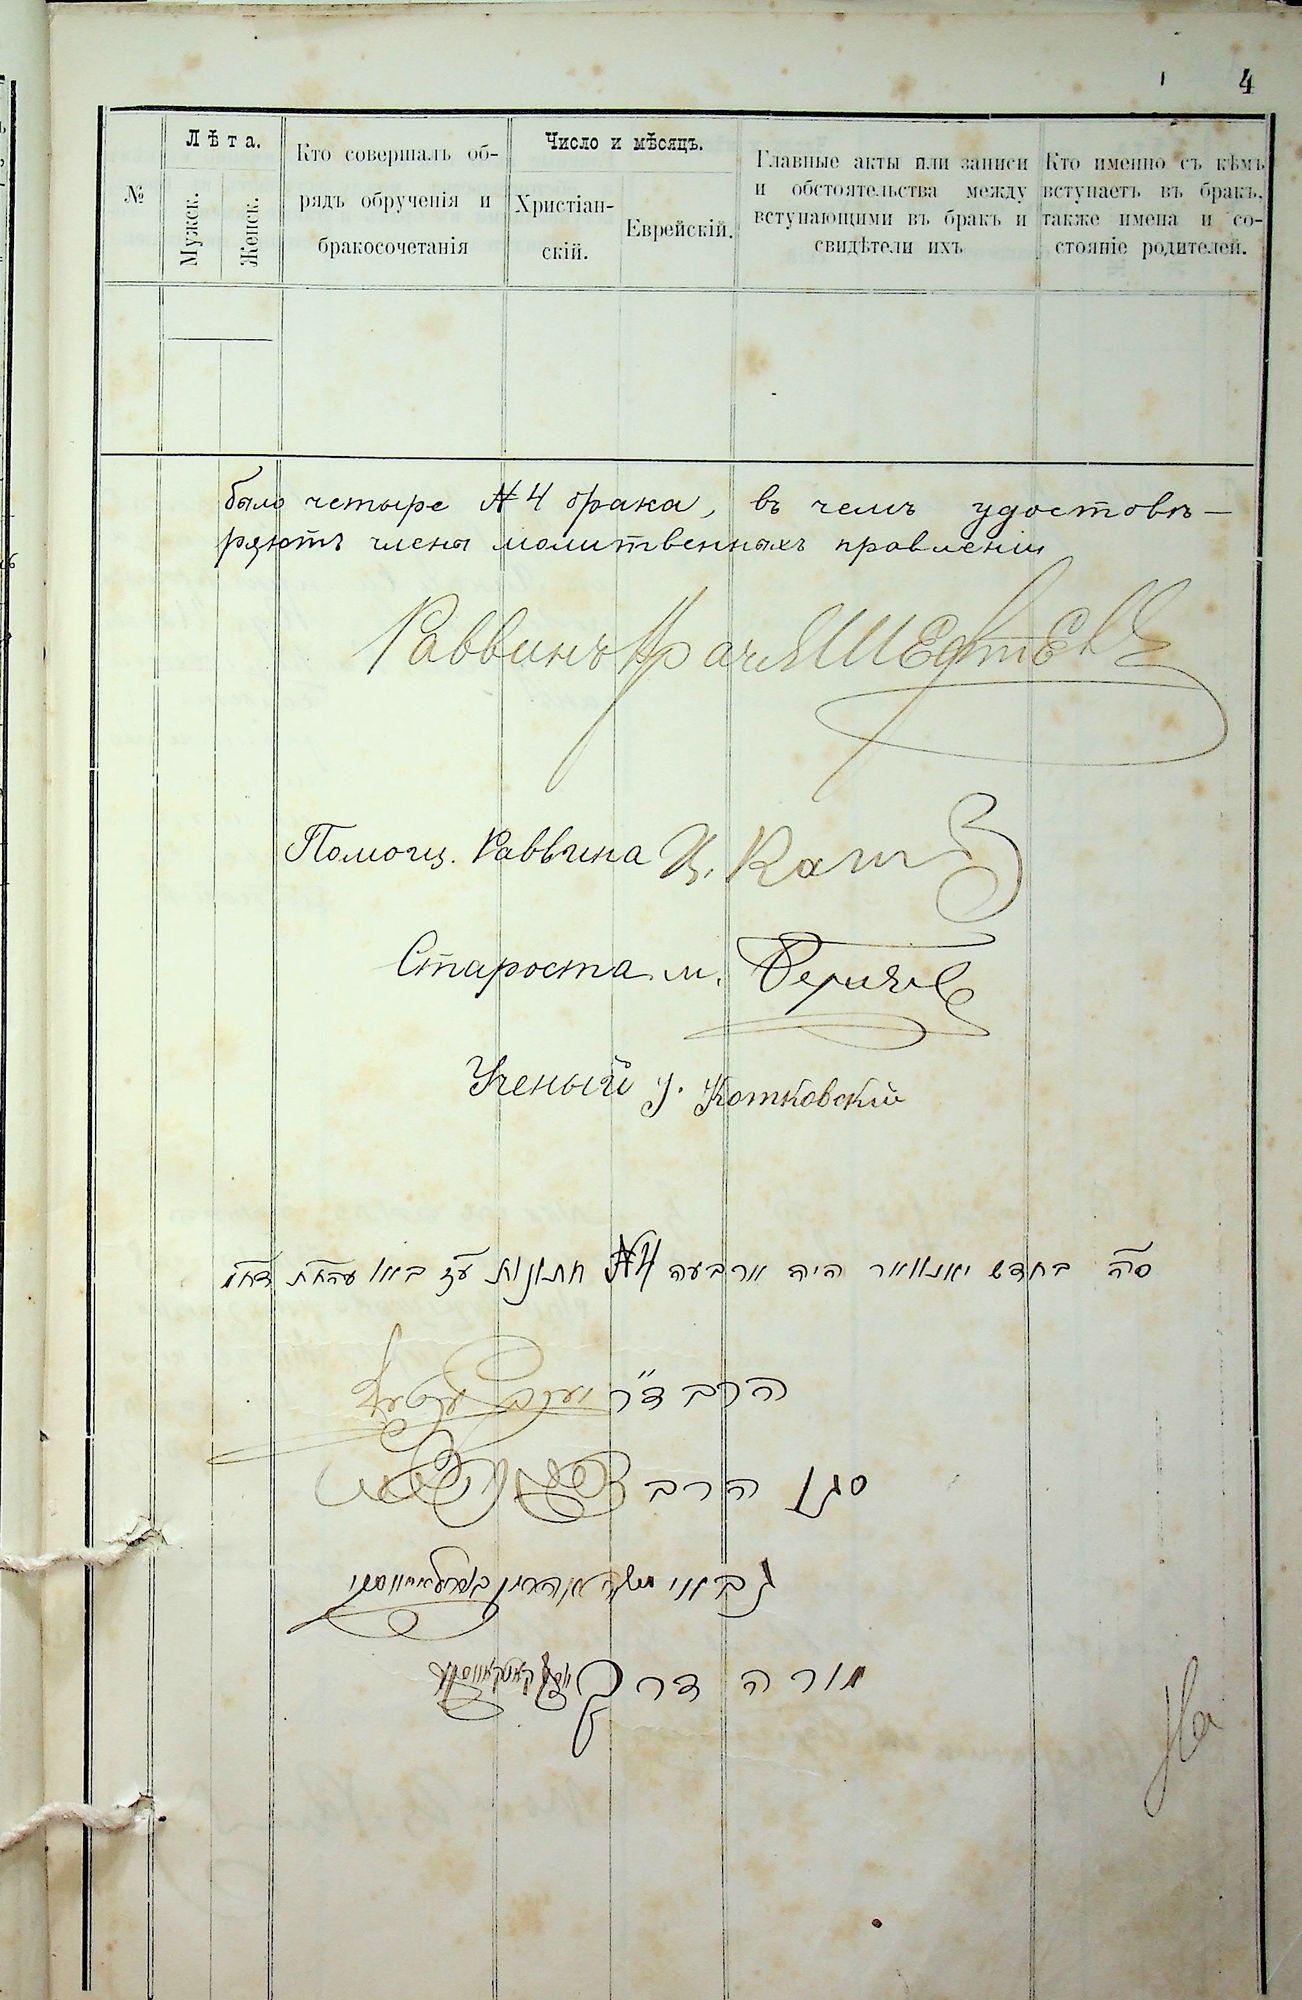 4
№
Лѣта.
Мужск.
Женск.
Кто совершалъ об-
рядъ обрученія и
бракосочетанія
Число и мѣсяцъ.
Христіан-
скій.
Еврейскій.
Главные акты или записи
и обстоятельства между
вступающими въ бракъ и
свидѣтели ихъ
Кто именно съ кѣмъ
вступаетъ въ бракъ,
также имена и со-
стояніе родителей.
было четыре № 4 брака, въ чемъ удостовѣ-
ряютъ члены молитвенныхъ правленій
Раввинъ Врачъ Я Шефтель
Помощ. Раввина Ц. Кац
Староста М.
Ученый У. Котковскій
סה בחדש יאנוואר היה ארבעה № 4 חתונות עז באו עהח
הרב ד״ר
סגן הרב
גבאי משה אהרון
מורה דרך